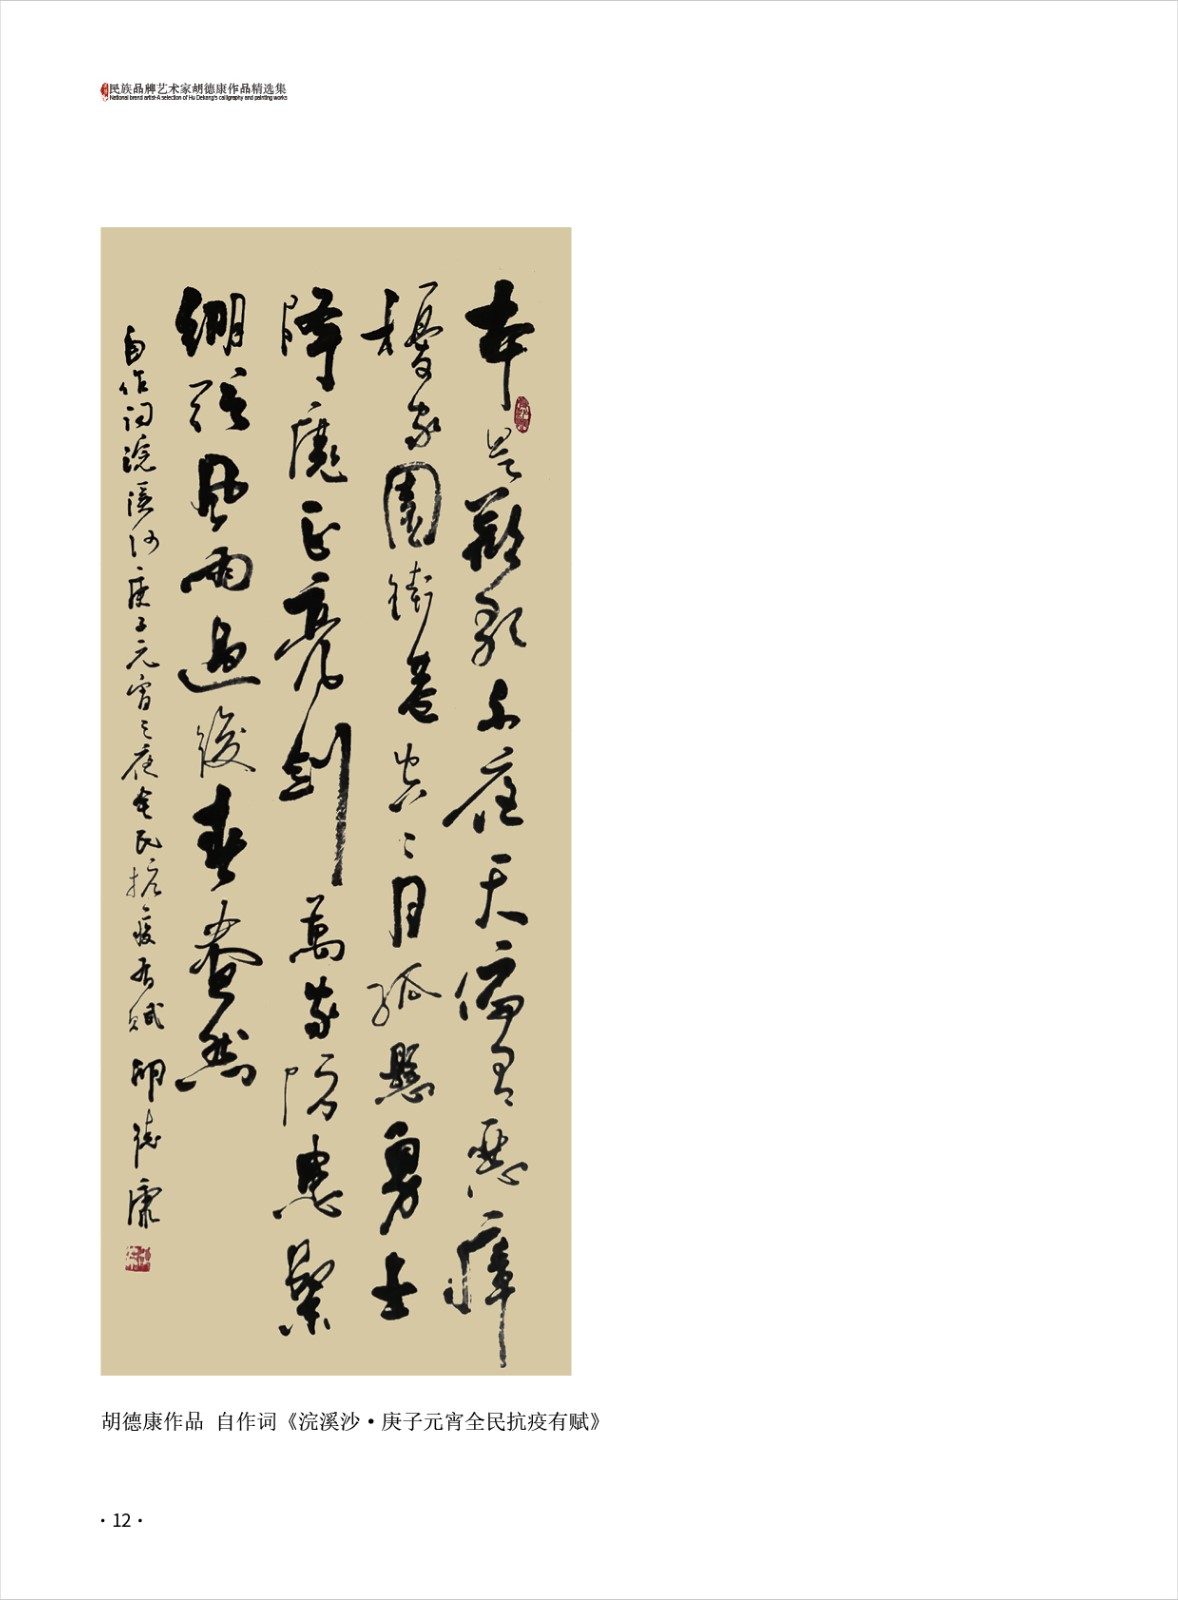 民族品牌艺术家胡德康作品精选集
National brand artist-A selection of Hu Dekang's calligraphy and painting works
本是歡歌不夜天偏有惡瘴
擾家園街巷空々月孤懸勇士
降魔正亮劍萬家防患緊
繃弦風雨過後春盎然
自作词浣溪沙庚子元宵之夜全民抗疫有賦 胡德康
胡德康作品 自作词《浣溪沙·庚子元宵全民抗疫有赋》
·12·